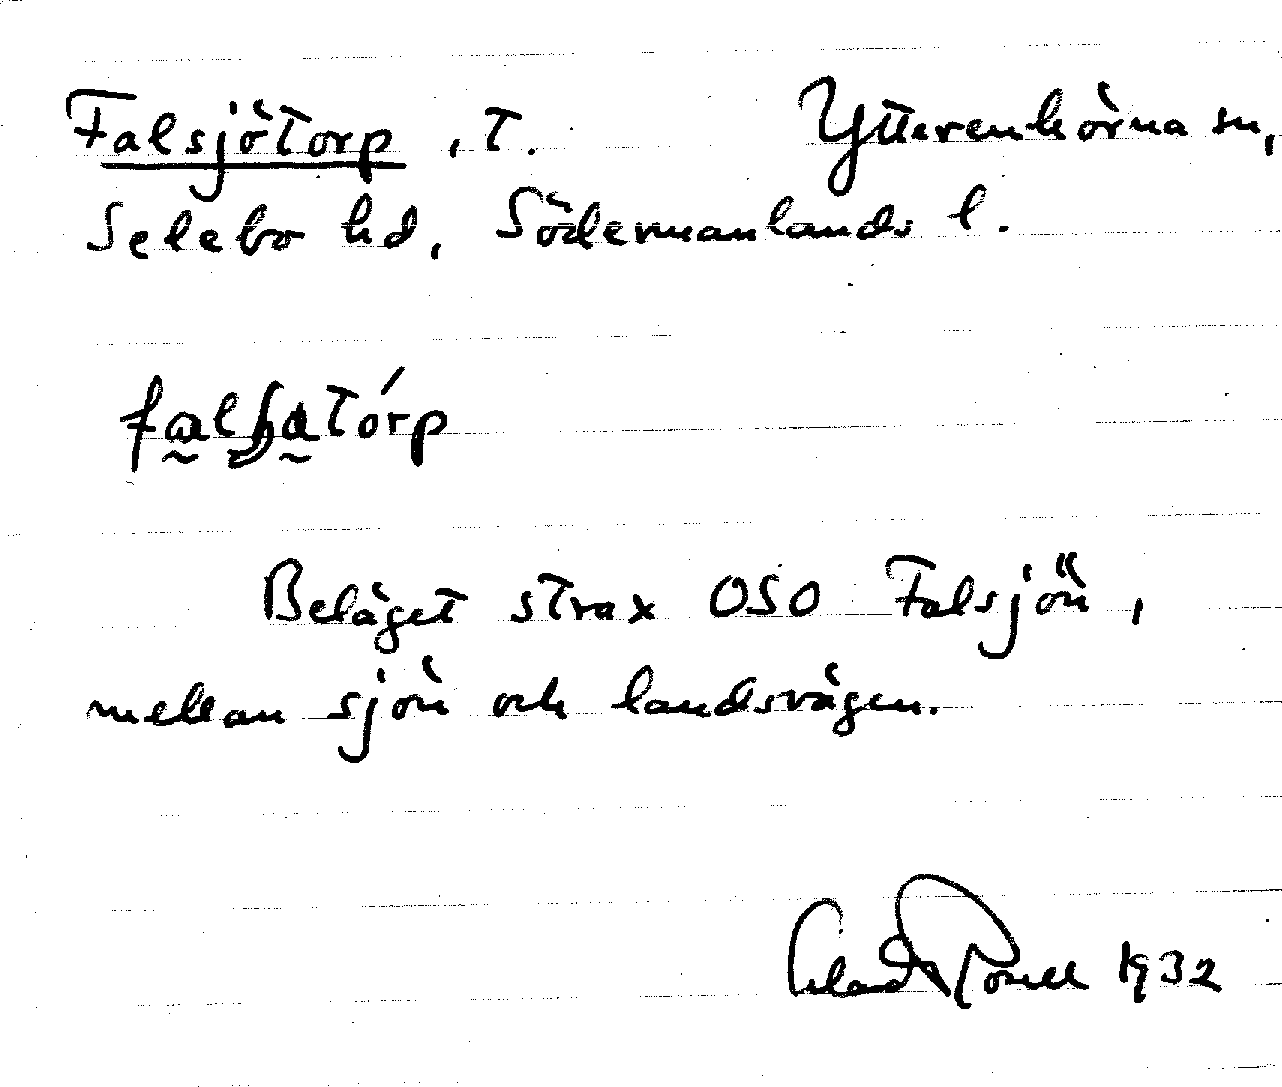 Falsjötorp, T. Ytterenhörna sn,
Selebo hd, Södermanlands l.
Beläget strax OSO Falsjön,
mellan sjön och landsvägen.
1932